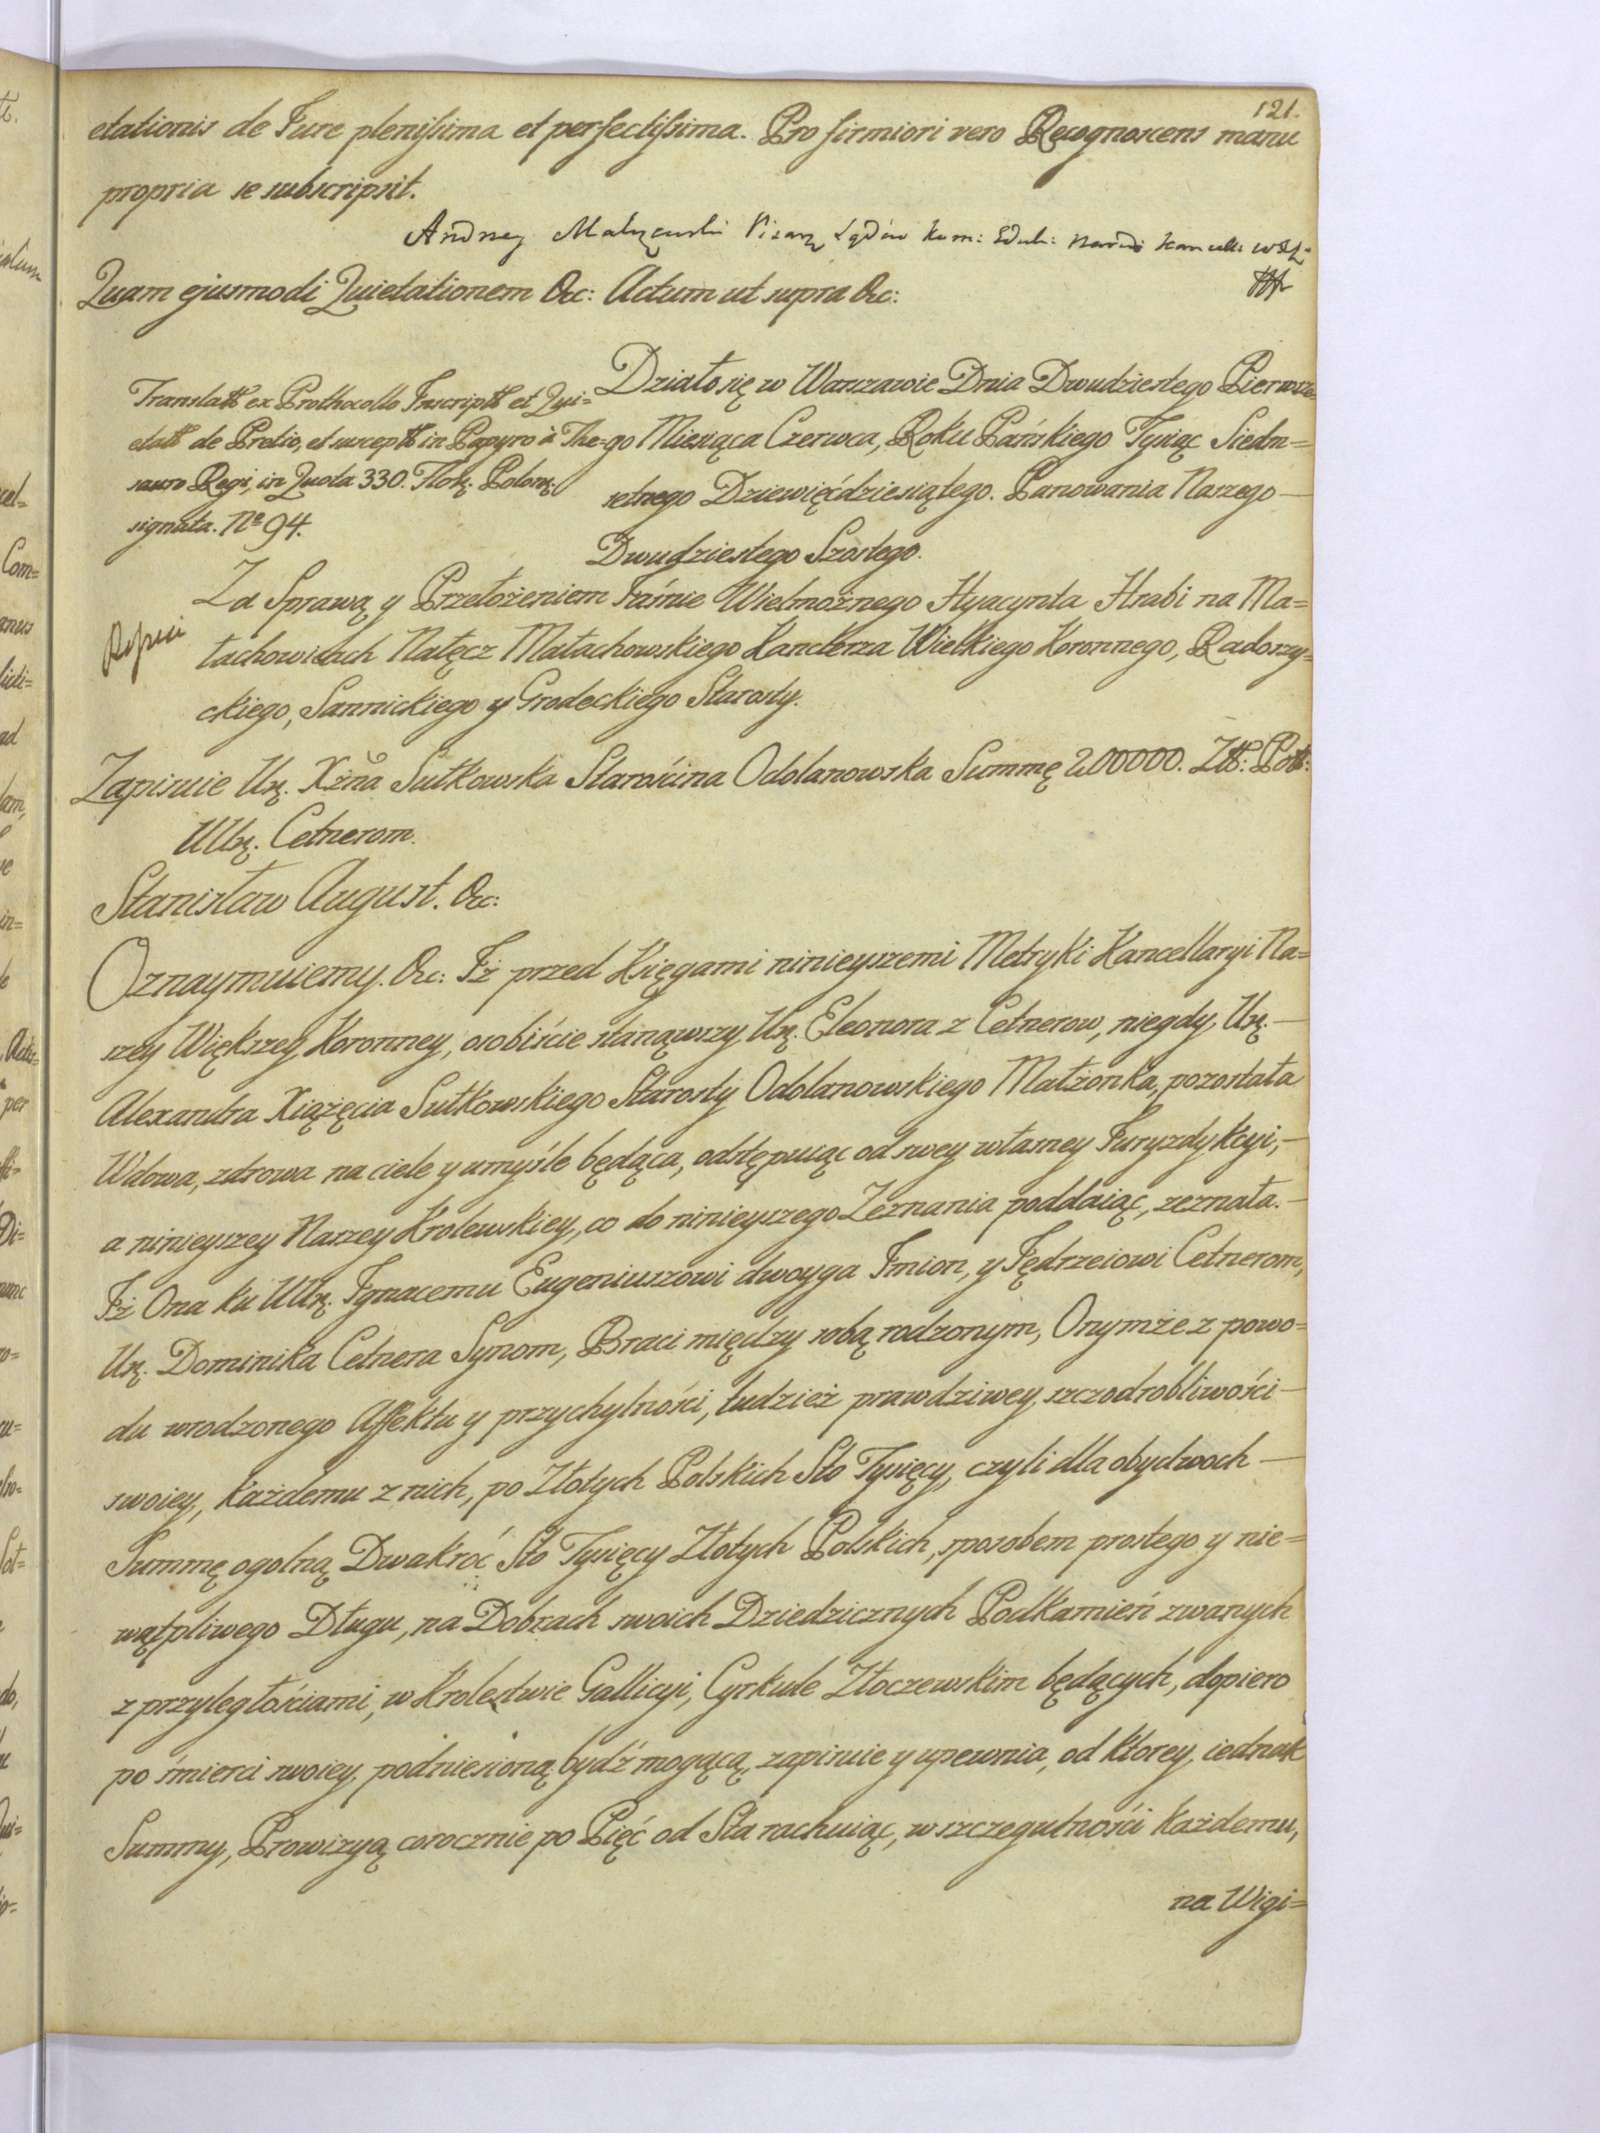 121.
etationis de Jure plenissima et perfectissima. Pro firmiori vero Recognoscens manu
propria se subscripsit.
Andrzey Pisarz Sądów Kom: Eduk:
Quam ejusmodi Quietationem &c: Actum ut supra &c:
Translatt ex Prothocollo Inscriptt et Qui=
etatt de Pretio, et susceptt in Papyro à The=
sauro Regi, in Quota 330. Flok. Polonz.
signata. No 94.
Działo się w Warszawie Dnia Dwudziestego Pierwsze=
go Miesiąca Czerwca, Roku Pańskiego Tysiąc Siedm=
setnego Dziewięćdziesiątego. Panowania Naszego
Dwudziestego Szostego.
Za Sprawą y Przełożeniem Jaśnie Wielmożnego Hyacynta Hrabi na Ma=
łachowicach Nałęcz Małachowskiego Kanclerza Wielkiego Koronnego, Radoszy=
ckiego, Sannickiego y Grodeckiego Starosty.
Zapisuie Urz. Xżna Sułkowska Starościna Odolanowska Summę 200000. Ztt: Pott:
UUrz. Cetnerom.
Stanisław August. &c:
Oznaymuiemy. &c: Iż przed Księgami ninieyszemi Metryki Kancellaryi Na=
szey Większey Koronney, osobiście stanąwszy Urz. Eleonora z Cetnerow, niegdy Urz.
Alexandra Xiążęcia Sułkowskiego Starosty Odolanowskiego Małżonka, pozostała
Wdowa, zdrowa na ciele y umyśle będąca, odstępuiąc od swey własney Juryzdykcyi,
a ninieyszey Naszey Krolewskiey, co do ninieyszego Zeznania poddaiąc, zeznała.
Iż Ona ku UUrz. Ignacemu Eugeniuszowi dwoyga Imion, y Jędrzeiowi Cetnerom,
Urz. Dominika Cetnera Synom, Braci między sobą rodzonym, Onymże z powo=
du wrodzonego Affektu y przychylności, tudzież prawdziwey szczodrobliwości
swoiey, każdemu z nich, po Złotych Polskich Sto Tysięcy, czyli dla obydwoch
Summę ogolną Dwakroć Sto Tysięcy Złotych Polskich, sposobem prostego y nie=
wątpliwego Długu, na Dobrach swoich Dziedzicznych Podkamień zwanych
z przyległościami, w Krolestwie Gallicyi, Cyrkule Złoczewskim będących, dopiero
po śmierci swoiey podniesioną bydź mogącą, zapisuie y upewnia, od ktorey iednak
Summy, Prowizyą corocznie po Pięć od Sta rachuiąc, w szczegulności każdemu,
na Wigi=